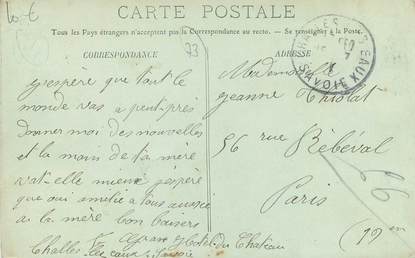 10 €
CARTE POSTALE
Tous les Pays étrangers n'acceptent pas la Correspondance au recto. — Se renseigner à la Poste.
73
CORRESPONDANCE
ADRESSE
CHALLES-LES-EAUX
SAVOIE
j'espère que tout le
monde vas a peut-près
donner moi des nouvelles
et la main de ta mère
vat-elle mieux j'espère
que oui amitié a tous
a la mère bon baisers
Hotel du Chateau
Challes les eaux Savoie
Mademoiselle
Jeanne Thiolat
56 rue Rébeval
Paris
(19em